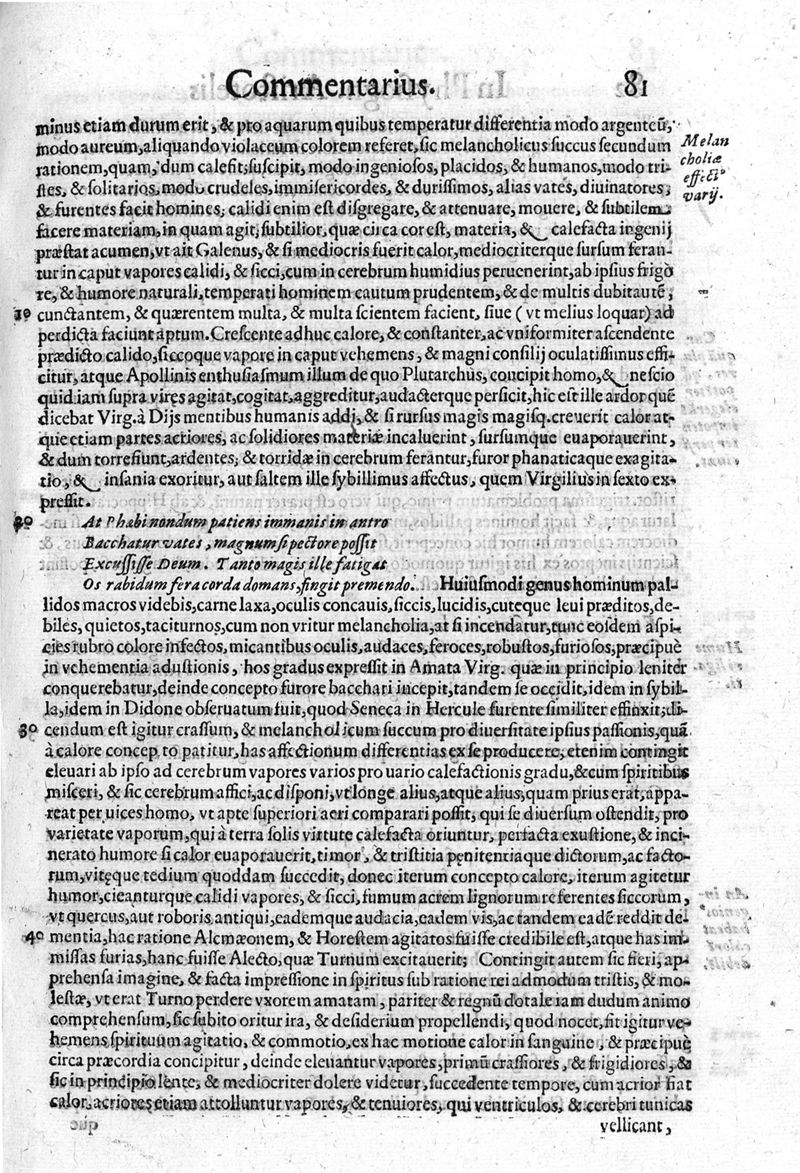 Commentarius. 81
minus etiam durum erit, & pro aquarum quibus temperatur differentia modo argenteũ,
modo aureum, aliquando violaceum colorem referet, sic melancholicus succus secundum
rationem, quam, dum calefit, suscipit, modo ingeniosos, placidos, & humanos, modo tri-
stes, & solitarios, modo crudeles, immisericordes, & durissimos, alias vates, diuinatores;
& furentes facit homines; calidi enim est disgregare, & attenuare, mouere, & subtilem
facere materiam, in quam agit; subtilior, quæ circa cor est, materia, & calefacta ingenij
præstat acumen, vt ait Galenus, & si mediocris fuerit calor, mediocriterque sursum feran-
tur in caput vapores calidi, & sicci, cum in cerebrum humidius peruenerint, ab ipsius frigo
re, & humore naturali, temperati hominem cautum prudentem, & de multis dubitautẽ,
cunctantem, & quærentem multa, & multa scientem facient, siue ( vt melius loquar) ad
perdicta faciunt aptum. Crescente adhuc calore, & constanter, ac vniformiter ascendente
prædicto calido, siccoque vapore in caput vehemens, & magni consilij oculatissimus effi-
citur, atque Apollinis enthusiasmum illum de quo Plutarchus, concipit homo, & nescio
quid iam supra vires agitat, cogitat, aggreditur, audacterque perficit, hic est ille ardor quẽ
dicebat Virg. à Dijs mentibus humanis addi, & si rursus magis magisq. creuerit calor at-
que etiam partes actiores, ac solidiores materiæ incaluerint, sursumque euaporauerint,
& dum torrefiunt, ardentes, & torridæ in cerebrum ferantur, furor phanaticaque exagita-
tio, & insania exoritur, aut saltem ille sybillimus affectus, quem Virgilius in sexto ex-
pressit.
At Phabi nondum patiens immanis in antro
Bacchatur vates, magnum si pectore possit
Excussisse Deum. Tanto magis ille fatigat
Os rabidum fera corda domans, fingit premendo. Huiusmodi genus hominum pal-
lidos macros videbis, carne laxa, oculis concauis, siccis, lucidis, cuteque leui præditos, de-
biles, quietos, taciturnos, cum non vritur melancholia, at si incendatur, tunc eosdem aspi-
cies rubro colore infectos, micantibus oculis, audaces, feroces, robustos, furiosos, præcipuè
in vehementia adustionis, hos gradus expressit in Amata Virg. quæ in principio leniter
conquerebatur, deinde concepto furore bacchari incepit, tandem se occidit, idem in sybil-
la, idem in Didone obseruatum fuit, quod Seneca in Hercule furente similiter effinxit; di-
cendum est igitur crassum, & melancholicum succum pro diuersitate ipsius passionis, quã
à calore concepto patitur, has affectionum differentias ex se producere, etenim contingit
eleuari ab ipso ad cerebrum vapores varios pro uario calefactionis gradu, & cum spiritibus
misceri, & sic cerebrum affici, ac disponi, vt longe alius, atque alius, quam prius erat, appa-
reat per uices homo, vt apte superiori aeri comparari possit, qui se diuersum ostendit, pro
varietate vaporum, qui à terra solis virtute calefacta oriuntur, perfacta exustione, & inci-
nerato humore si calor euaporauerit, timor, & tristitia pęnitentiaque dictorum, ac facto-
rum, vitęque tedium quoddam succedit, donec iterum concepto calore, iterum agitetur
humor, cieanturque calidi vapores, & sicci, fumum acrem lignorum referentes siccorum,
vt quercus, aut roboris antiqui, eademque audacia, eadem vis, ac tandem eadẽ reddit de-
mentia, hac ratione Alcmæonem, & Horestem agitatos fuisse credibile est, atque has im-
missas furias, hanc fuisse Alecto, quæ Turnum excitauerit; Contingit autem sic fieri, ap-
prehensa imagine, & facta impressione in spiritus sub ratione rei admodum tristis, & mo-
lestæ, vt erat Turno perdere vxorem amatam, pariter & regnũ dotale iam dudum animo
comprehensum, sic subito oritur ira, & desiderium propellendi, quod nocet, fit igitur ve-
hemens spirituum agitatio, & commotio, ex hac motione calor in sanguine, & præcipuè
circa præcordia concipitur, deinde eleuantur vapores, primũ crassiores, & frigidiores, &
sic in principio lente, & mediocriter dolere videtur, succedente tempore, cum acrior fiat
calor, acriores etiam attolluntur vapores, & tenuiores, qui ventriculos, & cerebri tunicas
vellicant,
Melan
choliæ
effect'
varij.
10
20
30
40